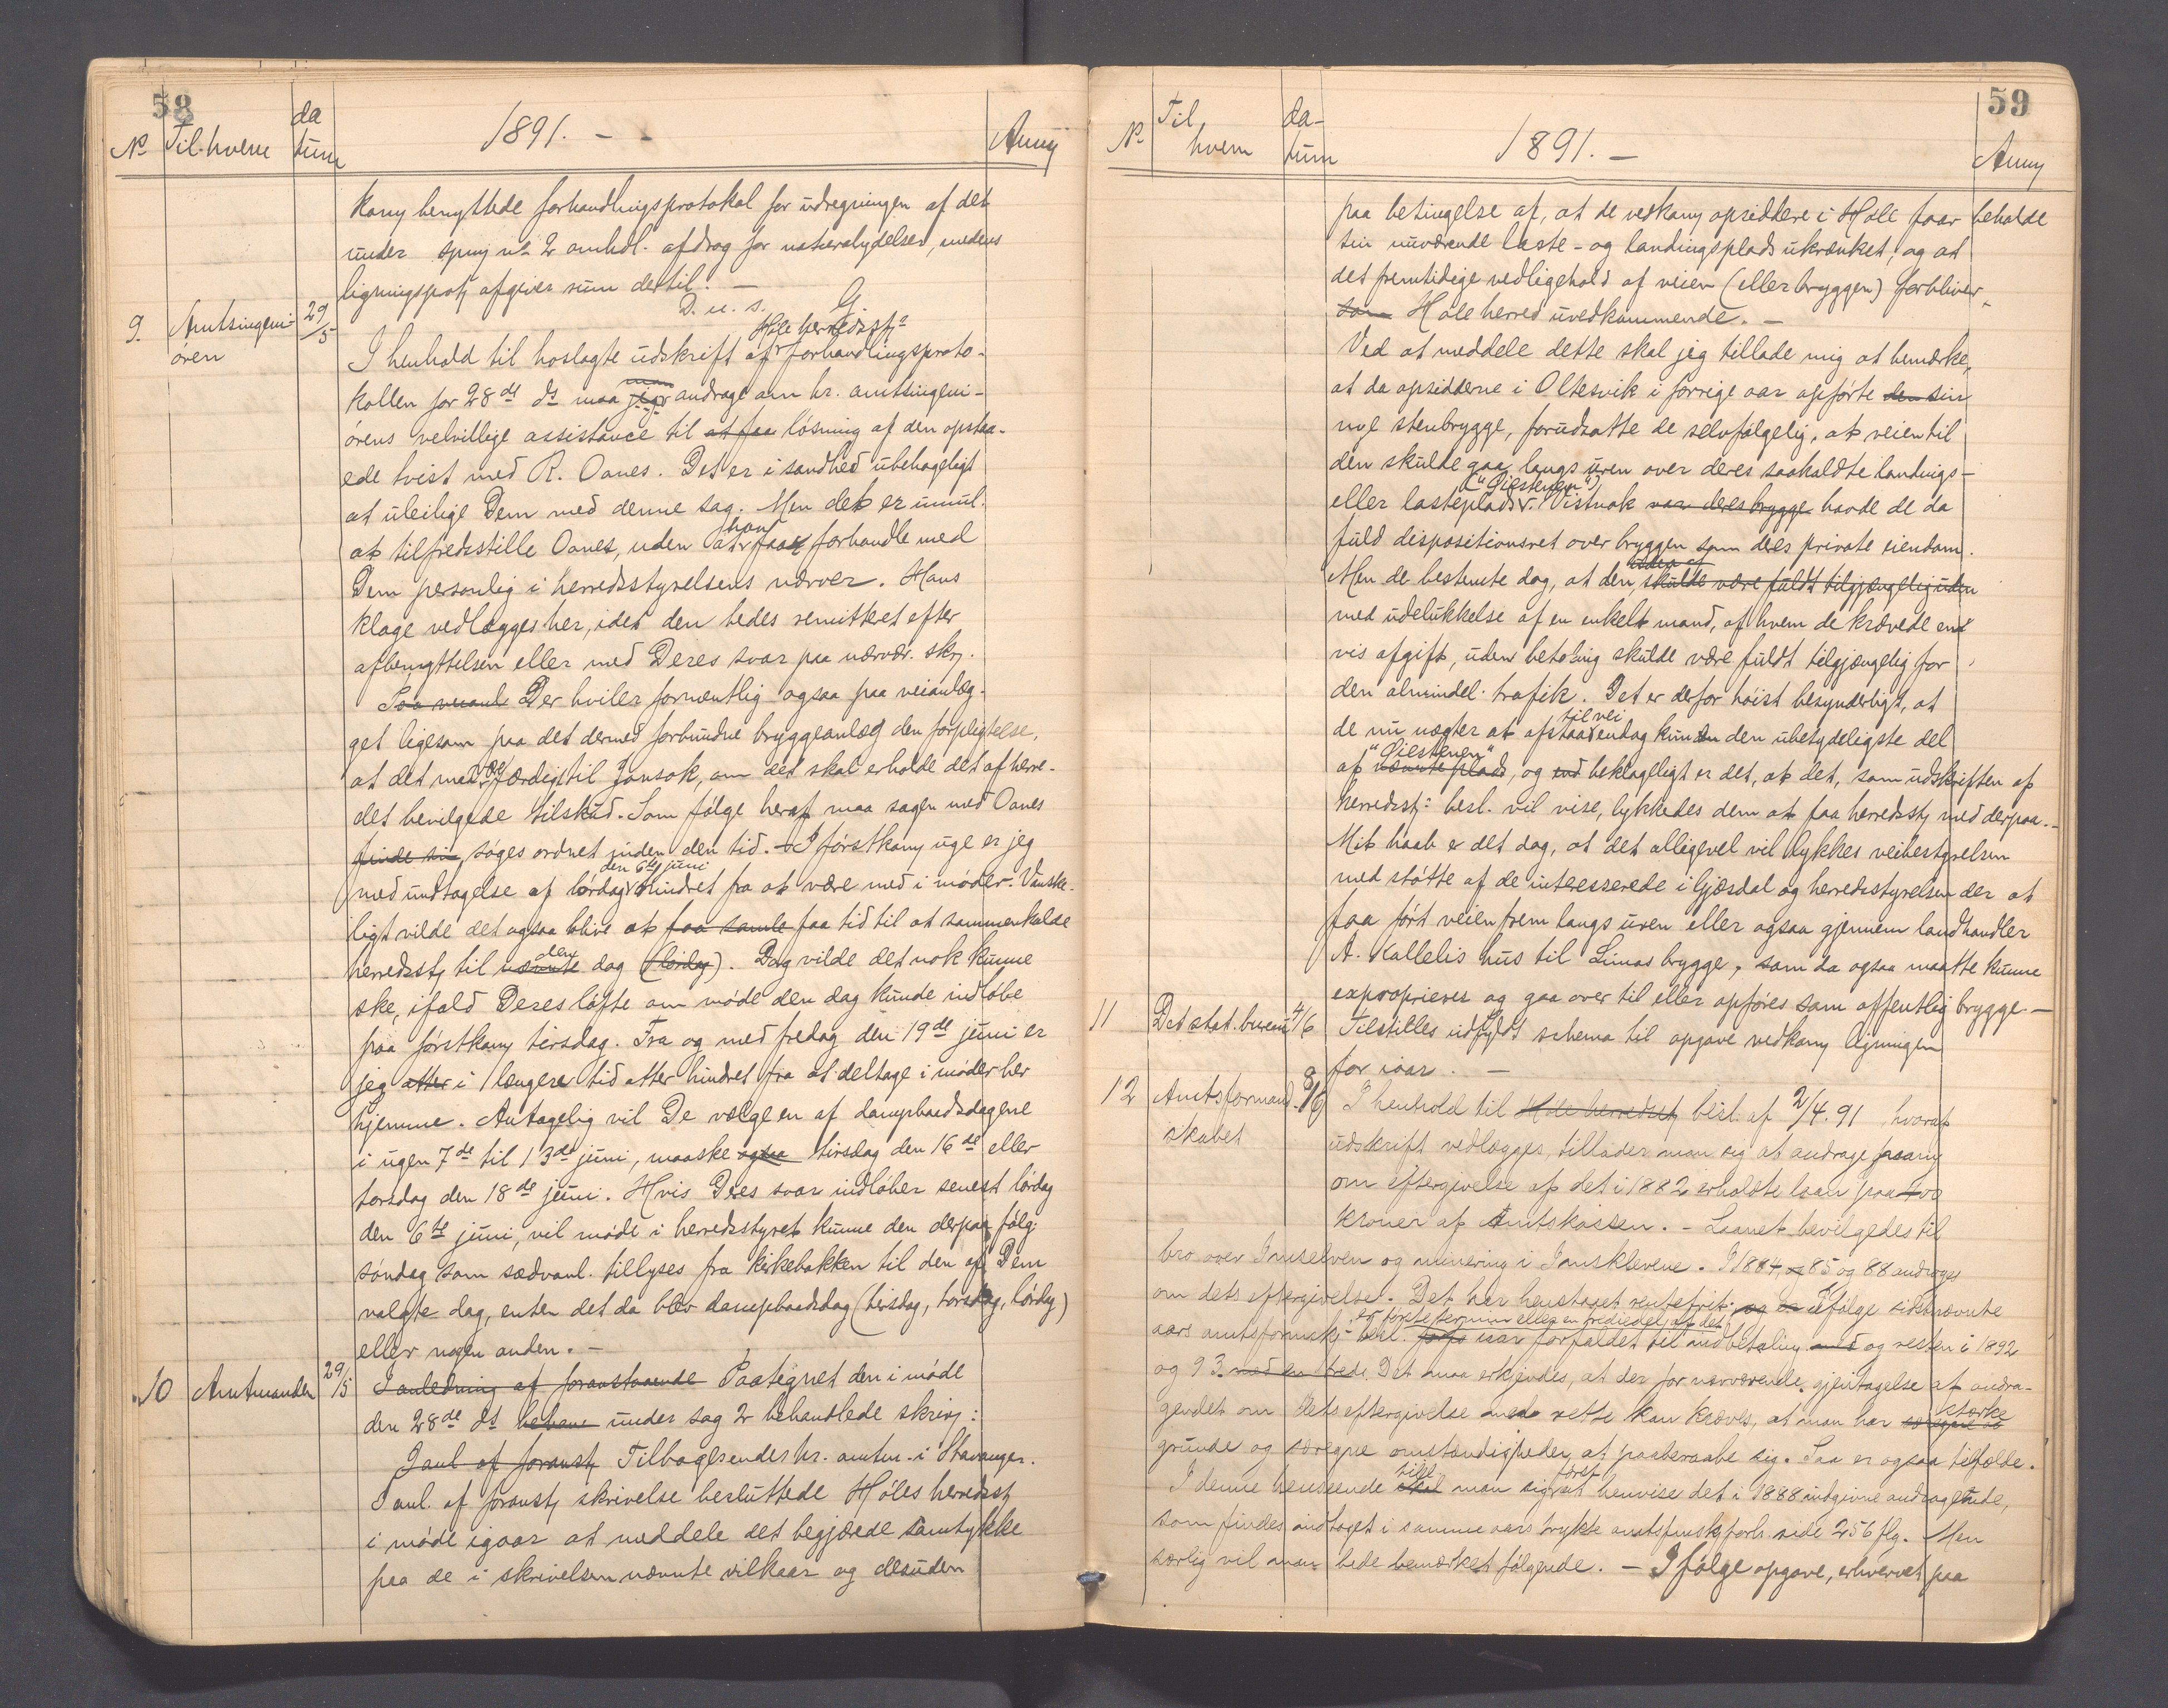 58
No Til hvem datum 1891. - - Anmq
komq benyttede forhandlingsprotokol for udregningen af det
under spmq no 2 omhdl. afdrag for naturalydelser, medens
ligningsprotq afgiver sum dertil. —
D. u. s. G.
9. Amtsingeni-ören 29/5 I henhold til hoslagte udskrift af Höle herredsstqs forhandlingsproto-
kollen for 28de ds maa man andrage om hr. amtsingeni-
örens velvillige assistance til at faa lösning af den opstaa-
ede tvist med R. Oanes. Det er i sandhed ubehageligt
at uleilige Dem med denne sag. Men det er umul.
at tilfredsstille Oanes, uden at han faar forhandle med
Dem personlig i herredsstyrelsens nærvær. Hans
klage vedlægges her, idet den bedes remitteret efter
afbenyttelsen eller med Deres svar paa nærvær. skr.
Der hviler formentlig ogsaa paa veianlæg-
get ligesom paa det dermed forbundne bryggeanlæg den forpligtelse,
at det maa være færdigt til Jonsok, om det skal erholde det af herre-
det bevilgede tilskud. Som fölge heraf maa sagen med Oanes
finde sin söges ordnet inden den tid. — I förstkomq uge er jeg
med undtagelse af lördag den 6te juni hindret fra at være med i möder. Vanske-
ligt vilde det ogsaa blive at faa samle faa tid til at sammenkalde
herredsstq til nævnte den dag (lördag). Dog vilde det nok kunne
ske, ifald Deres löfte om möde den dag kunde indlöbe
paa förstkomq tirsdag. Fra og med fredag den 19de juni er
jeg atter i længere tid atter hindret fra at deltage i möder her
hjemme. Antagelig vil De vælge en af dampbaadsdagene
i ugen 7de til 13de juni, maaske ogsaa tirsdag den 16de eller
torsdag den 18de juni. Hvis Deres svar indlöber senest lördag
den 6te juni, vil möde i herredsstyret kunne den derpaa fölg.
söndag som sædvanl. tillyses fra kirkebakken til den af Dem
valgte dag, enten det da blev dampbaadsdag (tirsdag, torsdag, lördag)
eller nogen anden. —
10 Amtmanden 29/5 I anledning af foranstaaende Paategnet den i möde
den 28de ds under sag 2 behandlede skrivq:
I anl. af foranstq Tilbagesendes hr. amtm. i Stavanger.
I anl. af foranstq skrivelse besluttede Höles herredsstq
i möde igaar at meddele det begjærede samtykke
paa de i skrivelsen nævnte vilkaar og desuden
59
No Til hvem datum 1891. — Anmq
paa betingelse af, at de vedkomq opsiddere i Höle faar beholde
sin nuværende laste- og landingsplads ukrænket, og at
det fremtidige vedligehold af veien (eller bryggen) forbliver
som Höle herred uvedkommende. —
Ved at meddele dette skal jeg tillade mig at bemærke,
at da opsidderne i Oltesvik i forrige aar opförte den sin
nye stenbrygge, forudsatte de selvfölgelig, at veien til
den skulde gaa langs uren over deres saakaldte landings-
eller lasteplads ("Giesteneren"). Vistnok var deres brygge havde de da
fuld dispositionsret over bryggen som deres private eiendom.
Men de bestemte dog, at den, skulde være fuldt tilgjængelig uden
med udelukkelse af en enkelt mand, af hvem de krævede en
vis afgift, uden betaling skulde være fuldt tilgjængelig for
den almindel. trafik. Det er derfor höist besynderligt, at
de nu nægter at afstaa til vei endog kun den ubetydeligste del
af nævnte plads, og beklageligt er det, at det, som udskriften af
herredsstqs besl. vil vise, lykkedes dem at faa herredsstq med derpaa. -
Mit haab er det dog, at det alligevel vil lykkes veibestyrelsen
med stötte af de interesserede i Gjæsdal og herredsstyrelsen der at
faa fört veien frem langs uren eller ogsaa gjennem landhandler
A. Kallelis hus til Limas brygge, som da ogsaa maatte kunne
exproprieres og gaa over til eller opföres som offentlig brygge. —
11 Det stat. bureau 4/6 Tilstilles udfyldt schema til opgave vedkomq ligningen
for iaar. —
12 Amtsformand-skabet 8/6 I henhold til Höle herredsstq besl. af 2/4.91 hvoraf
udskrift vedlægges, tillader man sig at andrage
om eftergivelse af det i 1882 erholdte laan paa
kroner af Amtskassen. — Laanet bevilgedes til
bro over Imselven og minering i Imsklevene. I 1884, 85 og 88 androges
om dets eftergivelse. Det har henstaaet rentefrit. og er ifölge sidstnævnte
aars amtsformskqs besl. er förste termin eller en trediedel af det iaar forfaldet til indbetaling med og resten i 1892
og 93. Det maa erkjendes, at der for nærværende gjentagelse af andra-
gendet om dets eftergivelse med rette kan kræves, at man har stærke
grunde og særegne omstændigheder at paaberaabe sig. Saa er ogsaa tilfælde.
I denne henseende vil man först henvise det i 1888 indgivne andragende,
som findes indtaget i samme aars trykte amtsfmskforh. side 256 flg. Men
særlig vil man bede bemærket fölgende. — Ifölge opgave, erhvervet paa